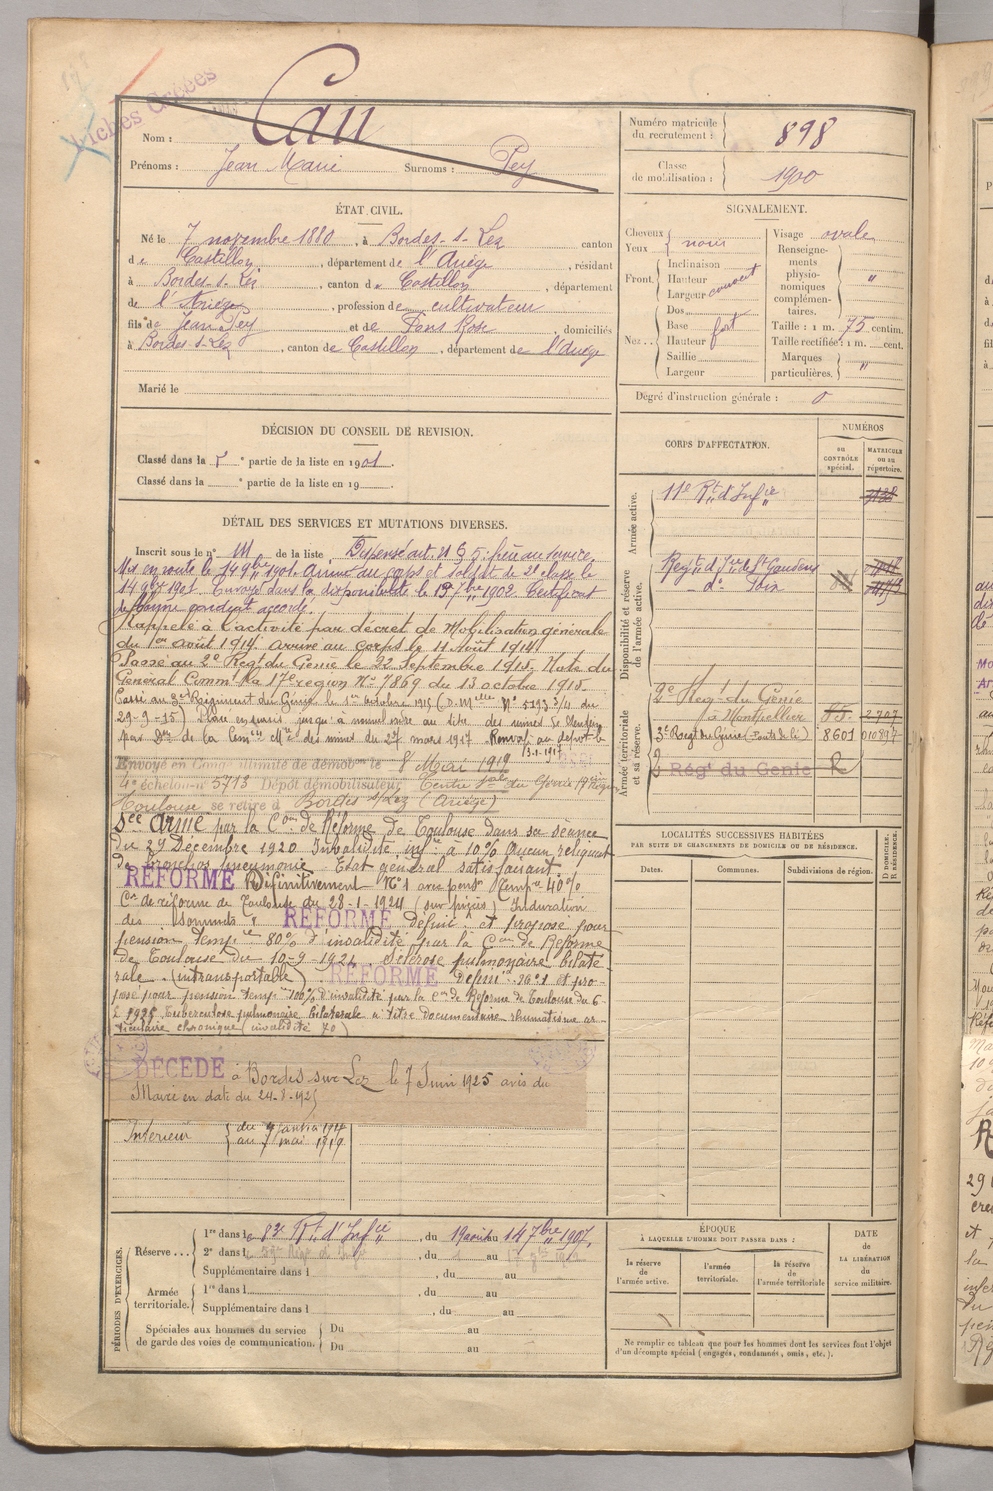 Fiches Créées
Cau
Nom :
Prénoms : Jean Marie Surnoms : Pey
Numéro matricule du recrutement : 898
Classe de mobilisation : 1900
ÉTAT CIVIL.
Né le 7 novembre 1880, à Bordes-s-Lez canton
de Castillon, département de l'Ariège, résidant
à Bordes-s-Lez, canton de Castillon, département
de l'Ariège, profession de cultivateur
fils de Jean Pey et de Pons Rose, domiciliés
à Bordes-s-Lez, canton de Castillon, département de l'Ariège
Marié le
SIGNALEMENT.
Cheveux
Yeux
noirs
Front.
Inclinaison
Hauteur
Largeur couvert
Nez..
Dos
Base fort
Hauteur
Saillie
Largeur
Visage ovale
Renseignements physionomiques complémentaires. "
Taille : 1 m. 75 centim.
Taille rectifiée : 1 m. cent.
Marques particulières. "
Degré d'instruction générale : 0
DÉCISION DU CONSEIL DE REVISION.
Classé dans la 5e partie de la liste en 1901.
Classé dans la e partie de la liste en 19
DÉTAIL DES SERVICES ET MUTATIONS DIVERSES.
Inscrit sous le n° de la liste Dispensé art. 21 § 5 : frère au service.
Mis en route le 14 9bre 1901. Arrivé au corps et soldat de 2e classe le
14 9bre 1901. Envoyé dans la disponibilité le 19 7bre 1902. Certificat
de bonne conduite accordé.
Rappelé à l'activité par décret de Mobilisation générale
du 1er août 1914. arrivé au corps le 11 Août 1914
Passé au 2e Régt du Génie le 22 Septembre 1915. Note du
Général Commt la 17e région N° 7869 du 13 octobre 1915.
Passé au 3e Régiment du Génie le 1er octobre 1915 (D. Melle N° 5193 3/4 du
29-9-15) Placé en sursis jusqu'à nouvel ordre au titre des mines
par Don de la Comon Mre des mines du 27 mars 1917 Renvoi au dépôt le
Envoyé en Congé illimité de démobon le 8 Mai 1919
4e échelon n° 5713 Dépôt démobilisateur Centre Spal du Génie 17e Région
Toulouse se retire à Bordes s/Lez (Ariège)
Sce ARMÉ par la Con de Réforme de Toulouse dans sa séance
du 29 Décembre 1920 Invalidité infre à 10% Aucun reliquat
de broncho pneumonie. État général satisfaisant.
RÉFORMÉ Définitivement N° 1 avec penson tempre 40%
Con de réforme de Toulouse du 28-1-1924 (sur pièces) Induration
des sommets " RÉFORMÉ définif et proposé pour
pension tempre 80% d'invalidité par la Con de Réforme
de Toulouse du 10-9-1924. Sclérose pulmonaire bilaté-
rale. (intransportable) RÉFORMÉ définif N° 1 et pro-
posé pour pension tempre 100% d'invalidité par la Con de Réforme de Toulouse du 6-
2 1925 tuberculose pulmonaire bilatérale à titre documentaire rhumatisme ar-
ticulaire chronique (invalidité 70)
DÉCÉDÉ à Bordes-sur-Lez le 7 Juin 1925 avis du
Maire en date du 24-8-1925
Intérieur
au 7 mai 1919
CORPS D'AFFECTATION.
NUMÉROS
au contrôle spécial.
matricule ou au répertoire.
Armée active.
11e Rt d'Infie
Disponibilité et réserve de l'armée active.
Regt d'Infie de St Gaudens
- do - Foix
Armée territoriale et sa réserve.
2e Régt du Génie
à Montpellier 2707
3e Régt du Génie 8601 010897
2 Régt du Genie R
LOCALITÉS SUCCESSIVES HABITÉES
PAR SUITE DE CHANGEMENTS DE DOMICILE OU DE RÉSIDENCE.
Dates.
Communes.
Subdivisions de région.
D. DOMICILE. R. RÉSIDENCE.
PÉRIODES D'EXERCICES.
Réserve...
1re dans le 83e Rt d'Infie, du 19 août au 14 7bre 1907.
2e dans le, du 1 au 17
Supplémentaire dans l, du au
Armée territoriale.
1re dans l, du au
Supplémentaire dans l, du au
Spéciales aux hommes du service de garde des voies de communication.
Du au
Du au
ÉPOQUE
À LAQUELLE L'HOMME DOIT PASSER DANS :
la réserve de l'armée active.
l'armée territoriale.
la réserve de l'armée territoriale
DATE DE LA LIBÉRATION du service militaire.
Ne remplir ce tableau que pour les hommes dont les services font l'objet
d'un décompte spécial (engagés, condamnés, omis, etc.).